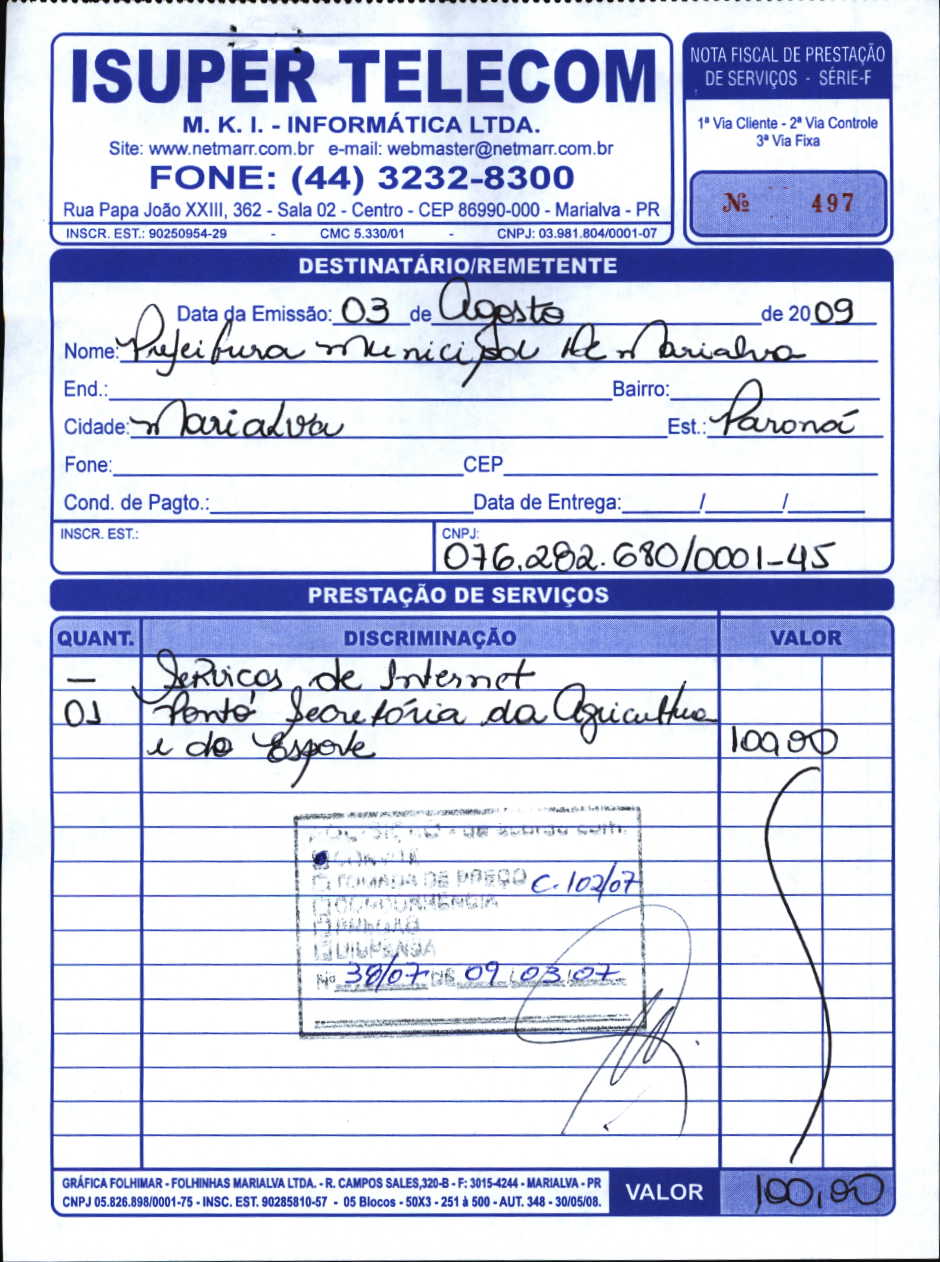 ISUPER TELECOM
M. K. I. - INFORMÁTICA LTDA.
Site: www.netmarr.com.br e-mail: webmaster@netmarr.com.br
FONE: (44) 3232-8300
Rua Papa João XXIII, 362 - Sala 02 - Centro - CEP 86990-000 - Marialva - PR
INSCR. EST.: 90250954-29 - CMC 5.330/01 - CNPJ: 03.981.804/0001-07
NOTA FISCAL DE PRESTAÇÃO
DE SERVIÇOS - SÉRIE-F
1ª Via Cliente - 2ª Via Controle
3ª Via Fixa
Nº 497
DESTINATÁRIO/REMETENTE
Data da Emissão: 03 de Agosto de 2009
Nome: Prefeitura Municipal de Marialva
End.: Bairro:
Cidade: Marialva Est.: Paraná
Fone: CEP
Cond. de Pagto.: Data de Entrega: / /
INSCR. EST.: CNPJ:
076.282.680/0001-45
PRESTAÇÃO DE SERVIÇOS
QUANT. DISCRIMINAÇÃO VALOR
— Serviços de Internet
01 Ponto Secretária da Agricultura
e do Esporte 100,00
de acordo com:
CONVITE
TOMADA DE PREÇO C. 102/07
CONCORRENCIA
PREGÃO
DISPENSA
Nº 38/07 DE 09/03/07
GRÁFICA FOLHIMAR - FOLHINHAS MARIALVA LTDA. - R. CAMPOS SALES,320-B - F: 3015-4244 - MARIALVA - PR
CNPJ 05.826.898/0001-75 - INSC. EST. 90285810-57 - 05 Blocos - 50X3 - 251 à 500 - AUT. 348 - 30/05/08.
VALOR 100,00